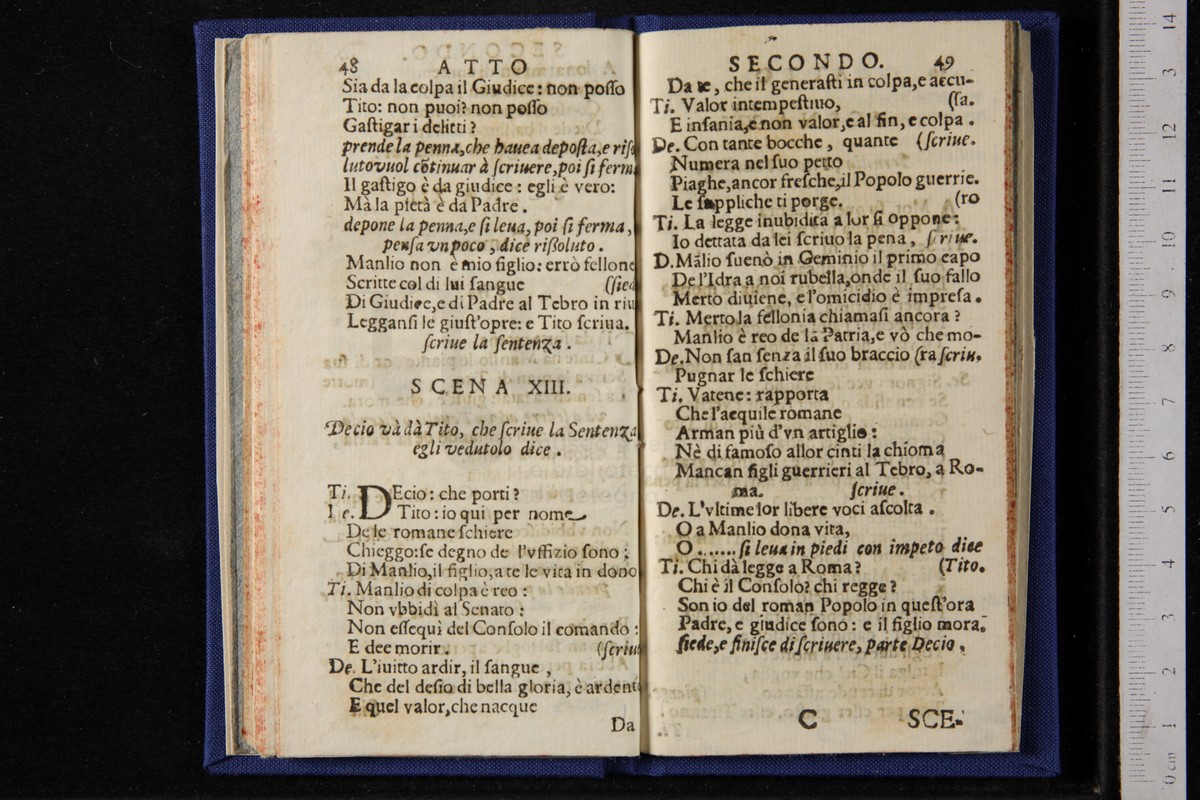 48 ATTO
Sia da la colpa il Giudice: non posso
Tito: non puoi? non posso
Gastigar i delitti?
prende la penna, che hauea deposta, e riso
luto vuol cōtinuar à scriuere, poi si ferma
Il gastigo è da giudice: egli è vero:
Mà la pietà è da Padre.
depone la penna, e si leua, poi si ferma,
pensa vn poco, dice rissoluto.
Manlio non è mio figlio: errò fellone
Scritte col di lui sangue (sied
Di Giudice, e di Padre al Tebro in riu
Leggansi le giust'opre: e Tito scriua.
scriue la sentenza.
SCENA XIII.
Decio và dà Tito, che scriue la Sentenza
egli vedutolo dice.
Ti. DEcio: che porti?
e. Tito: io qui per nome
De le romane schiere
Chieggo: se degno de l'vffizio sono:
Di Manlio, il figlio, a te le vita in dono
Ti. Manlio di colpa è reo:
Non vbbidì al Senato:
Non essequì del Consolo il comando:
E dee morir. (scriu
De. L'iuitto ardir, il sangue,
Che del desio di bella gloria, è ardent
E quel valor, che nacque
Da
SECONDO. 49
Da te, che il generasti in colpa, e accu-
Ti. Valor intempestiuo, (sa.
E insania, e non valor, e al fin, e colpa.
De. Con tante bocche, quante (scriue.
Numera nel suo petto
Piaghe, ancor fresche, il Popolo guerrie.
Le suppliche ti porge. (ro
Ti. La legge inubidita a lor si oppone:
Io dettata da lei scriuo la pena, scriue.
D. Mālio suenò in Geminio il primo capo
De l'Idra a noi rubella, onde il suo fallo
Merto diuiene, e l'omicidio è impresa.
Ti. Merto la fellonia chiamasi ancora?
Manlio è reo de la Patria, e vò che mo-
De. Non san senza il suo braccio (ra scriu.
Pugnar le schiere
Ti. Vatene: rapporta
Che l'aequile romane
Arman più d'vn artiglio:
Nè di famoso allor cinti la chioma
Mancan figli guerrieri al Tebro, a Ro-
ma. scriue.
De. L'vltime lor libere voci ascolta.
O a Manlio dona vita,
O ....... si leua in piedi con impeto dice
Ti. Chi dà legge a Roma? (Tito.
Chi è il Consolo? chi regge?
Son io del roman Popolo in quest'ora
Padre, e giudice sono: e il figlio mora.
siede, e finisce di scriuere, parte Decio.
C SCE-
14
3
12
11
10
9
8
7
6
5
4
3
2
1
0 cm